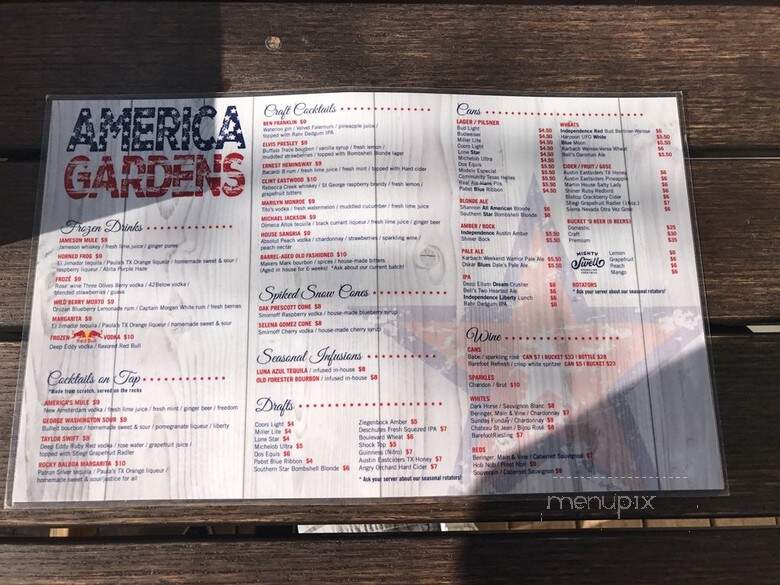 AMERICA
GARDENS
Frozen Drinks
JAMESON MULE $9
Jameson whiskey / fresh lime juice / ginger puree
HORNED FROG $9
El Jimador tequila / Paula's TX Orange liqueur / homemade sweet & sour /
raspberry liqueur / Abita Purple Haze
FROZÉ $9
Rosé wine / Three Olives Berry vodka / 42Below vodka /
blended strawberries / guava
WILD BERRY MOJITO $9
Drozen Blueberry Lemonade rum / Captain Morgan White rum / fresh berries
MARGARITA $9
El Jimador tequila / Paula's TX Orange liqueur / homemade sweet & sour
FROZEN Red Bull VODKA $10
Deep Eddy vodka / flavored Red Bull
Cocktails on Tap
*Made from scratch, served on the rocks
AMERICA'S MULE $9
New Amsterdam vodka / fresh lime juice / fresh mint / ginger beer / freedom
GEORGE WASHINGTON SOUR $9
Bulleit bourbon / homemade sweet & sour / pomegranate liqueur / liberty
TAYLOR SWIFT $9
Deep Eddy Ruby Red vodka / rose water / grapefruit juice /
topped with Stiegl Grapefruit Radler
ROCKY BALBOA MARGARITA $10
Patron Silver tequila / Paula's TX Orange liqueur /
homemade sweet & sour/justice for all
Craft Cocktails
BEN FRANKLIN $9
Waterloo gin / Velvet Falernum / pineapple juice /
topped with Rahr Dadgum IPA
ELVIS PRESLEY $9
Buffalo Trace bourbon / vanilla syrup / fresh lemon /
muddled strawberries / topped with Bombshell Blonde lager
ERNEST HEMINGWAY $9
Bacardi 8 rum / fresh lime / fresh mint / topped with Hard cider
CLINT EASTWOOD $10
Rebecca Creek whiskey / St George raspberry brandy / fresh lemon /
grapefruit bitters
MARILYN MONROE $9
Tito's vodka / fresh watermelon / muddled cucumber / fresh lime juice
MICHAEL JACKSON $9
Olmeca Altos tequila / black currant liqueur / fresh lime juice / ginger beer
HOUSE SANGRIA $9
Absolut Peach vodka / chardonnay / strawberries / sparkling wine /
peach nectar
BARREL-AGED OLD FASHIONED $10
Makers Mark bourbon / spices / house-made bitters
(Aged in house for 6 weeks) *Ask about our current batch!
Spiked Snow Cones
DAK PRESCOTT CONE $8
Smirnoff Raspberry vodka / house-made blueberry syrup
SELENA GOMEZ CONE $8
Smirnoff Cherry vodka / house-made cherry syrup
Seasonal Infusions
LUNA AZUL TEQUILA / infused in-house $8
OLD FORESTER BOURBON / infused in-house $8
Drafts
Coors Light $4
Miller Lite $4
Lone Star $4
Michelob Ultra $5
Dos Equis $6
Pabst Blue Ribbon $4
Southern Star Bombshell Blonde $6
Ziegenbock Amber $5
Deschutes Fresh Squeezed IPA $7
Boulevard Wheat $6
Shock Top $5
Guinness (Nitro) $7
Austin Eastciders TX Honey $7
Angry Orchard Hard Cider $7
* Ask your server about our seasonal rotators!
Cans
LAGER / PILSNER
Bud Light $4.50
Budweiser $4.50
Miller Lite $4.50
Coors Light $4.50
Lone Star $4.50
Michelob Ultra $5
Dos Equis $5.50
Modelo Especial $5.50
Community Texas Helles $5.50
Real Ale Hans Pils $5.50
Pabst Blue Ribbon $4.50
BLONDE ALE
Shannon All American Blonde $6
Southern Star Bombshell Blonde $6
AMBER / BOCK
Independence Austin Amber $5.50
Shiner Bock $5.50
PALE ALE
Karbach Weekend Warrior Pale $5.50
Oskar Blues Dale's Pale $5.50
IPA
Deep Ellum Dream Crusher $6
Bell's Two Hearted Ale $6
Independence Liberty Lunch $6
Rahr Dadgum IPA $6
WHEATS
Independence Red Bud Berliner-Weisse $6
Harpoon UFO White $5.50
Blue Moon $5.50
Karbach Weisse-Versa Wheat $6
Bell's Oarsman Ale $5.50
CIDER / FRUIT / GOSE
Austin Eastciders TX Honey $6
Austin Eastciders Pineapple $6
Martin House Salty Lady $6
Shiner Ruby Redbird $6
Bishop Crackberry Cider $6
Stiegl Grapefruit Radler $7
Sierra Nevada Otra Vez Gose $6
BUCKET 'O BEER (6 BEERS)
Domestic $25
Craft $30
Premium $35
MIGHTY
Swell
Lemon $6
Grapefruit $6
Peach $6
Mango $6
ROTATORS
* Ask your server about our seasonal rotators!
Wine
CANS
Babe / sparkling rosé CAN $7 | BUCKET $33 | BOTTLE $28
Barefoot Refresh / crisp white spritzer CAN $5 | BUCKET $23
SPARKLES
Chandon / Brut $10
WHITES
Dark Horse / Sauvignon Blanc $8
Beringer, Main & Vine / Chardonnay $7
Sunday Funday / Chardonnay $9
Chateau St Jean / Bijou Rosé $8
Barefoot/Riesling $7
REDS
Beringer, Main & Vine / Cabernet Sauvignon $7
Hob Nob / Pinot Noir $9
Souverain / Cabernet Sauvignon $9
menupix